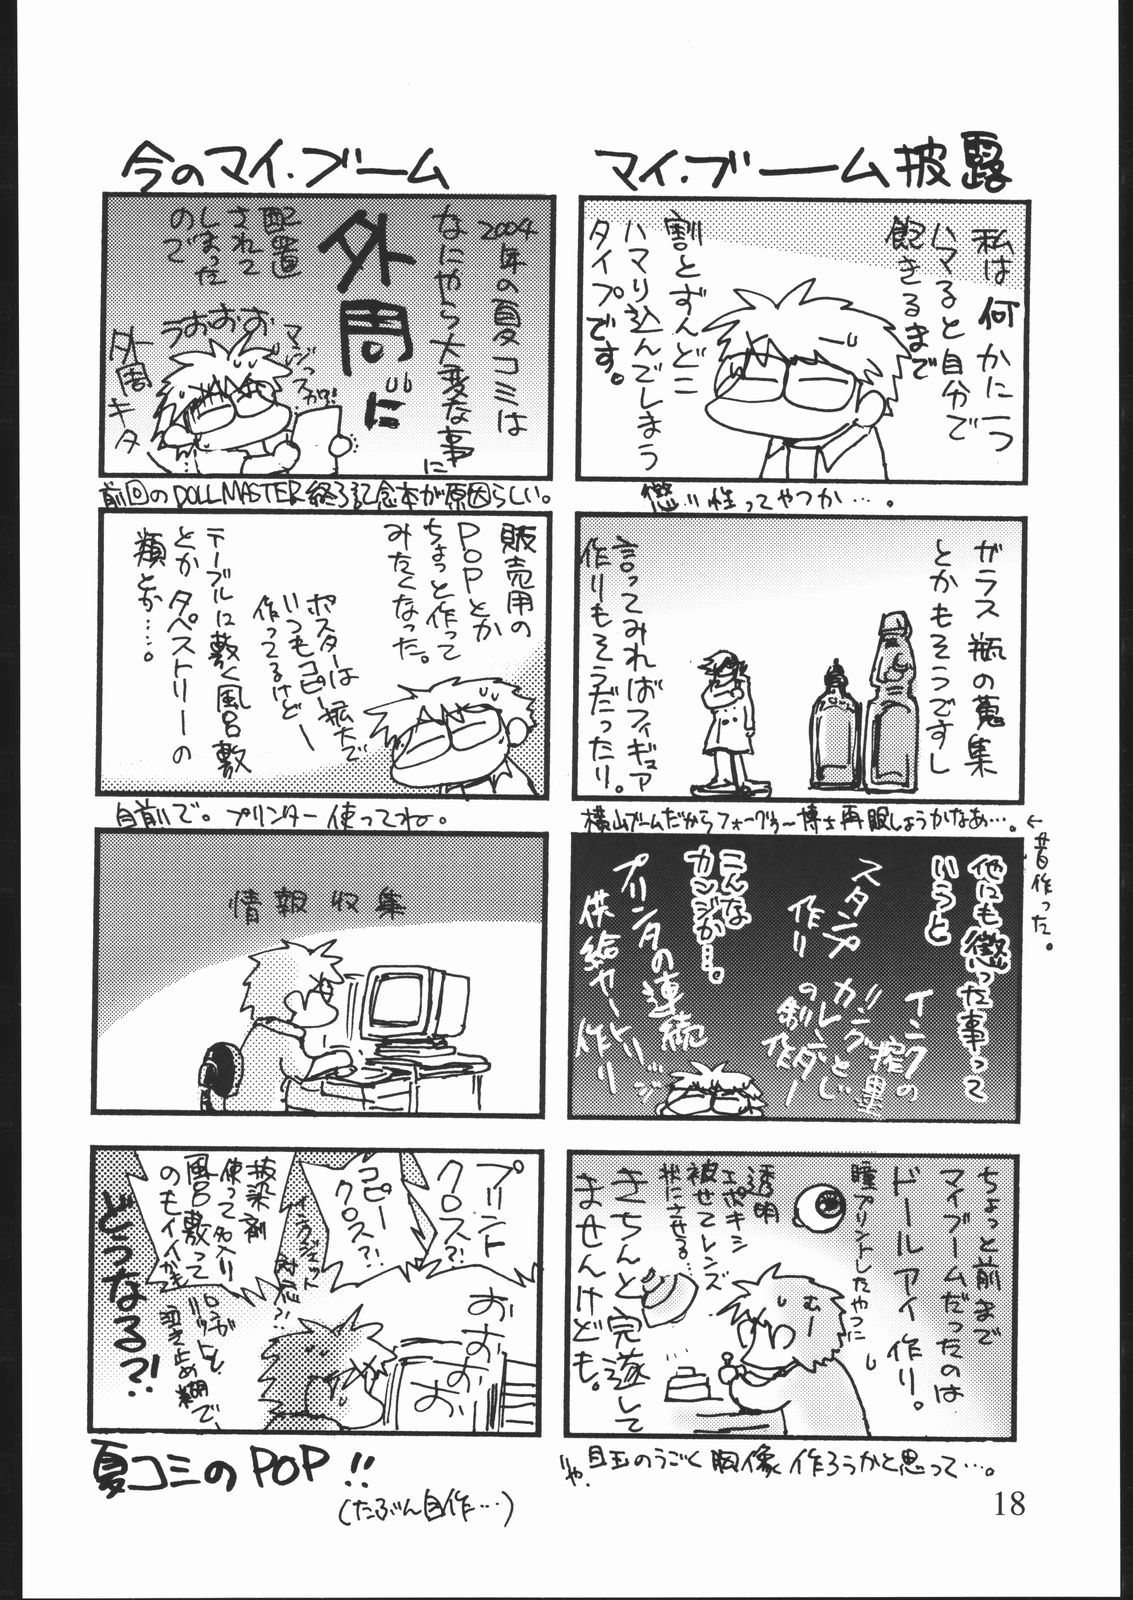 マイ・ブーム披露
私は何かに1つ
ハマると自分で
飽きるまで
割とずんどこ
ハマり込んでしまう
タイプです。
懲り性ってやつか…。
ガラス瓶の蒐集
とかもそうですし
言ってみればフィギュア
作りもそうだったり。
横山ブームだからフォーグラー博士再販しようかなあ…。
←昔作った。
他にも懲った事って
いうと
インクの
スタンプ
作り
リングとじ
カレンダー
の
こんな
カンジか…。
プリンタの連続
供給ヤートリッジ
作り
ちょっと前まで
マイブームだったのは
ドールアイ作り。
瞳プリントしたやつに
透明
エポキシ
被せてレンズ
状にさせる…
むー
きちんと完遂して
ませんけども。
いや、目玉のうごく胸像作ろうかと思って…。
今のマイ・ブーム
2004年の夏コミは
なにやら大変な事に
外周に
配置
されて
しまった
ので
うおおお
マジっスか!
外周キタ
前回のDOLLMASTER終了記念本が原因らしい。
販売用の
POPとか
ちょっと作って
みたくなった。
ポスターは拡大で
いつもコピー
作ってるけどー
テーブルに敷く風呂敷
とかタペストリーの
類とか……。
自前で。プリンター使ってね。
情報収集
プリント
クロス?!
コピー
クロス?!
インクジェット
対応?!
抜染剤
使って名入り
風呂敷って
のもイイかも
おおおおお
どうなる?!
夏コミのPOP!!
(たぶん自作…)
18